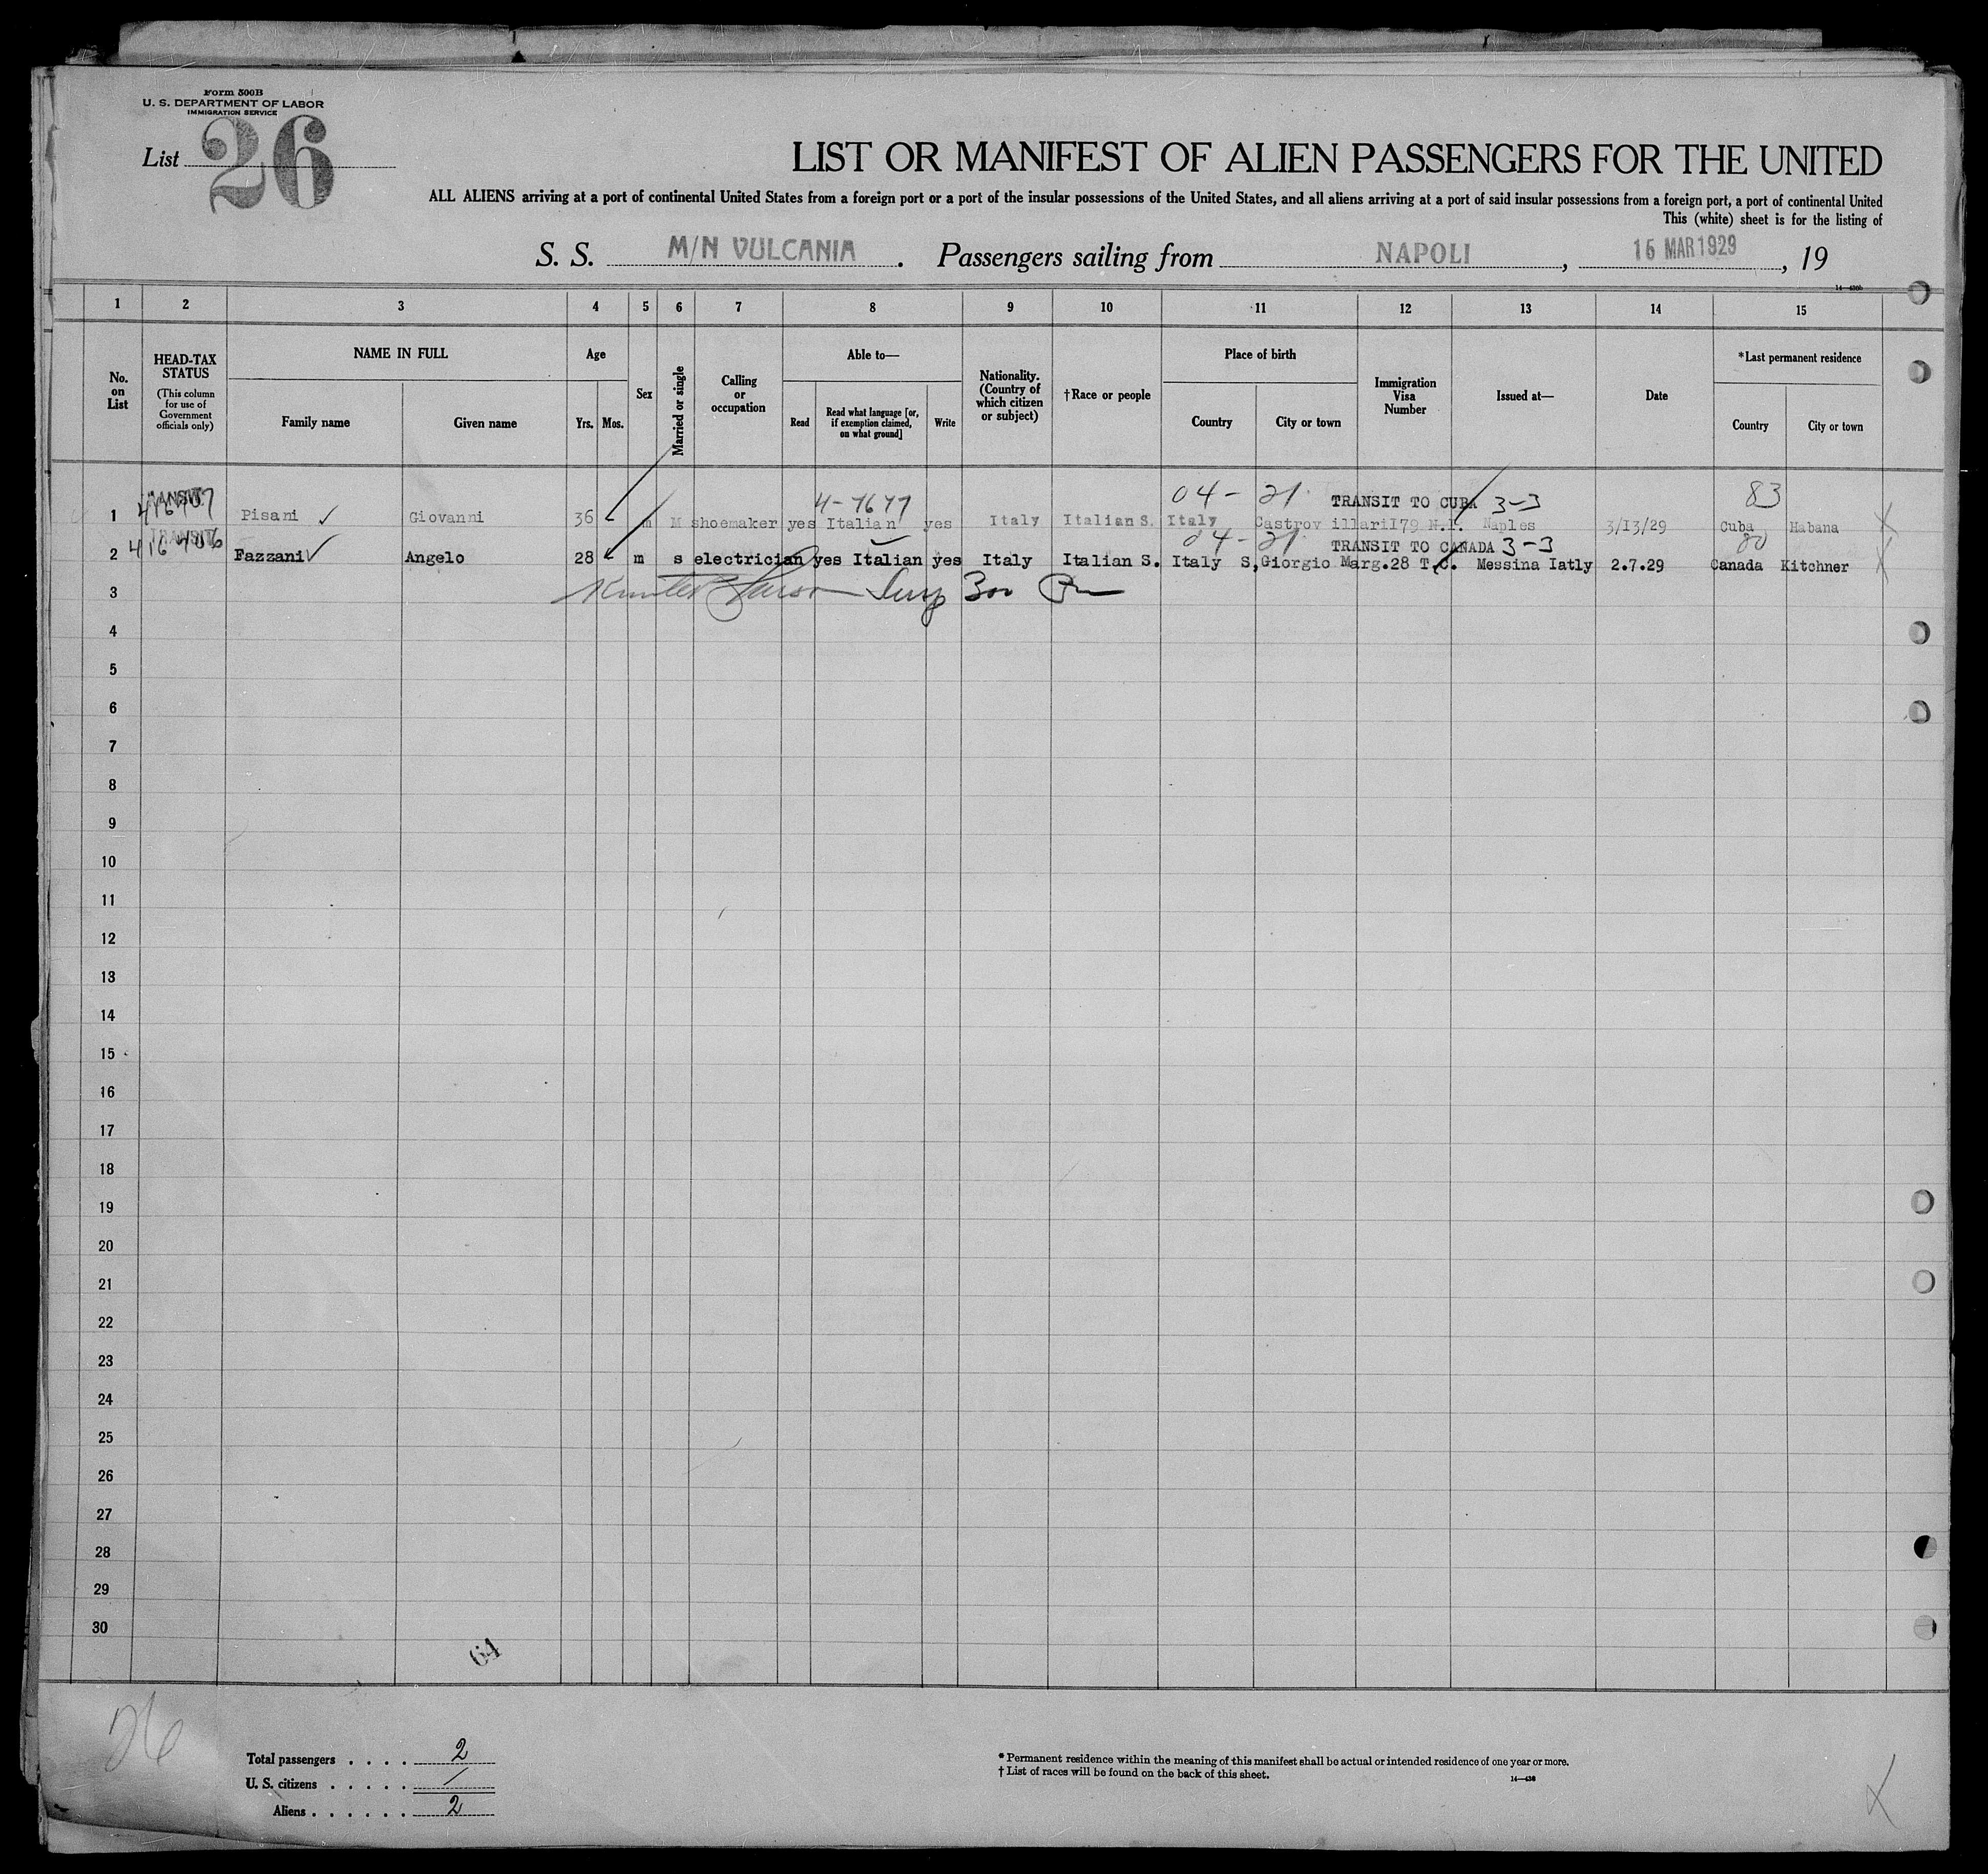 Form 500B
U. S. DEPARTMENT OF LABOR
IMMIGRATION SERVICE
List 26
LIST OR MANIFEST OF ALIEN PASSENGERS FOR THE UNITED
ALL ALIENS arriving at a port of continental United States from a foreign port or a port of the insular possessions of the United States, and all aliens arriving at a port of said insular possessions from a foreign port, a port of continental United
This (white) sheet is for the listing of
S. S. M/N VULCANIA. Passengers sailing from NAPOLI, 15 MAR 1929, 19
1 2 3 4 5 6 7 8 9 10 11 12 13 14 15
No. on List
HEAD-TAX STATUS (This column for use of Government officials only)
NAME IN FULL
Family name Given name
Age
Yrs. Mos.
Sex
Married or single
Calling or occupation
Able to—
Read Read what language [or, if exemption claimed, on what ground] Write
Nationality. (Country of which citizen or subject)
†Race or people
Place of birth
Country City or town
Immigration Visa Number
Issued at—
Date
*Last permanent residence
Country City or town
TRANSIT 4-7677 04- 21. TRANSIT TO CUBA 3-3 83
1 416407 Pisani ✓ Giovanni 36 m M shoemaker yes Italian yes Italy Italian S. Italy Castrov illari I79 N.I. Naples 3/I3/29 Cuba Habana
TRANSIT 04- 21. TRANSIT TO CANADA 3-3 80
2 416406 Fazzani ✓ Angelo 28 m s electrician yes Italian yes Italy Italian S. Italy S,Giorgio Marg.28 T.C. Messina Iatly 2.7.29 Canada Kitchner
3
4
5
6
7
8
9
10
11
12
13
14
15
16
17
18
19
20
21
22
23
24
25
26
27
28
29
30
64
26
Total passengers . . . . 2
U. S. citizens . . . . . /
Aliens . . . . . . 2
* Permanent residence within the meaning of this manifest shall be actual or intended residence of one year or more.
† List of races will be found on the back of this sheet.